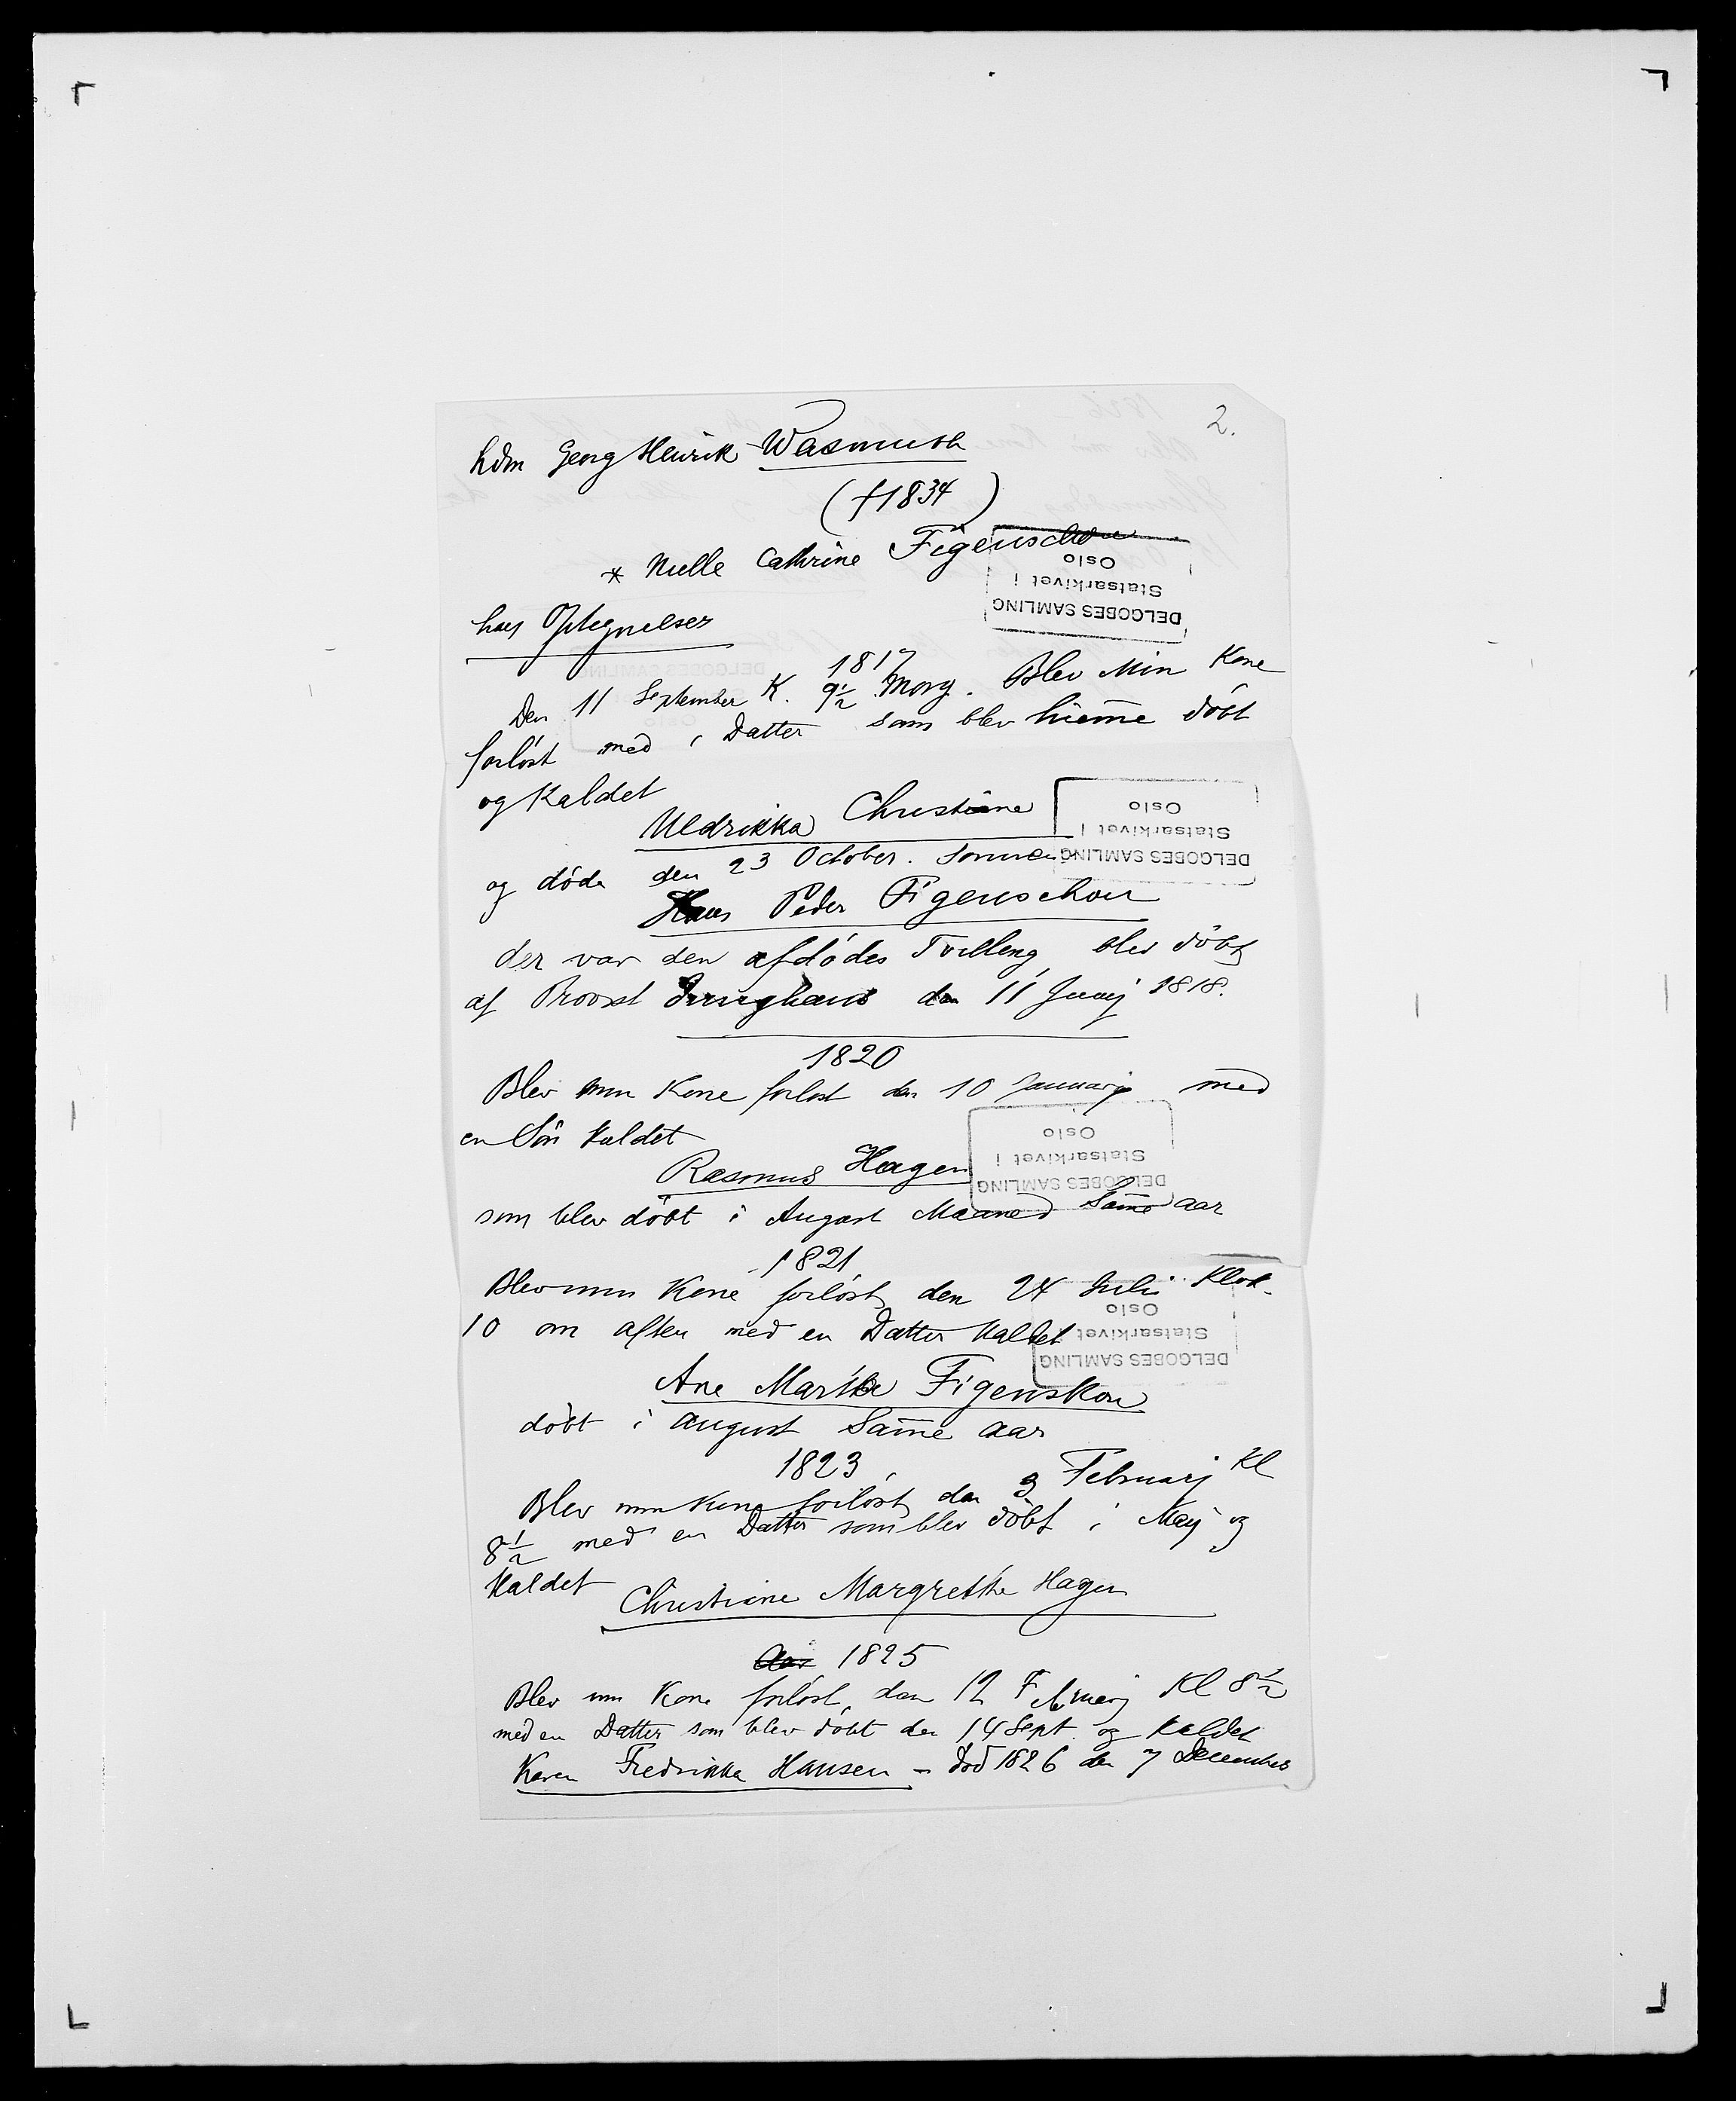 2.
hdm Georg Henrik Wasmuth
(†1834)
* Nille Cathrine Figenschou
DELGOBES SAMLING
Statsarkivet i
Oslo
hans Optegnelser
1817
Den 11 September K. 9½ Morg. Blev Min Kone
forløst med 1 Datter som blev hiem̅e döbt
og Kaldet
Uldrikka Christiane
DELGOBES SAMLING
Statsarkivet i
Oslo
og døde den 23 October. Sønnen
Hans Peder Figenschou
der var den afdødes Tvilling blev döbt
af Provst Junghans den 11 Junij 1818.
1820
Blev min Kone forløst den 10 Januarij med
en Søn kaldet
DELGOBES SAMLING
Statsarkivet i
Oslo
Rasmus Hagen
som blev döbt i August Maaned Sam̅e aar
1821
Blev min Kone forløst den 24 Juli Klok.
10 om aften med en Datter Kaldet
DELGOBES SAMLING
Statsarkivet i
Oslo
Ane Marthe Figenskou
döbt i August Sam̅e aar
1823
Blev min Kone forløst den 3 Februarij Kl
8½ med en Datter som blev döbt i Maij og
Kaldet
Christiane Margrethe Hagen
Aar 1825
Blev min Kone forløst den 12 Februarij Kl 8½
med en Datter som blev döbt den 14 Sept. og Kaldet
Karen Fredrikka Hansen – død 1826 den 7 December